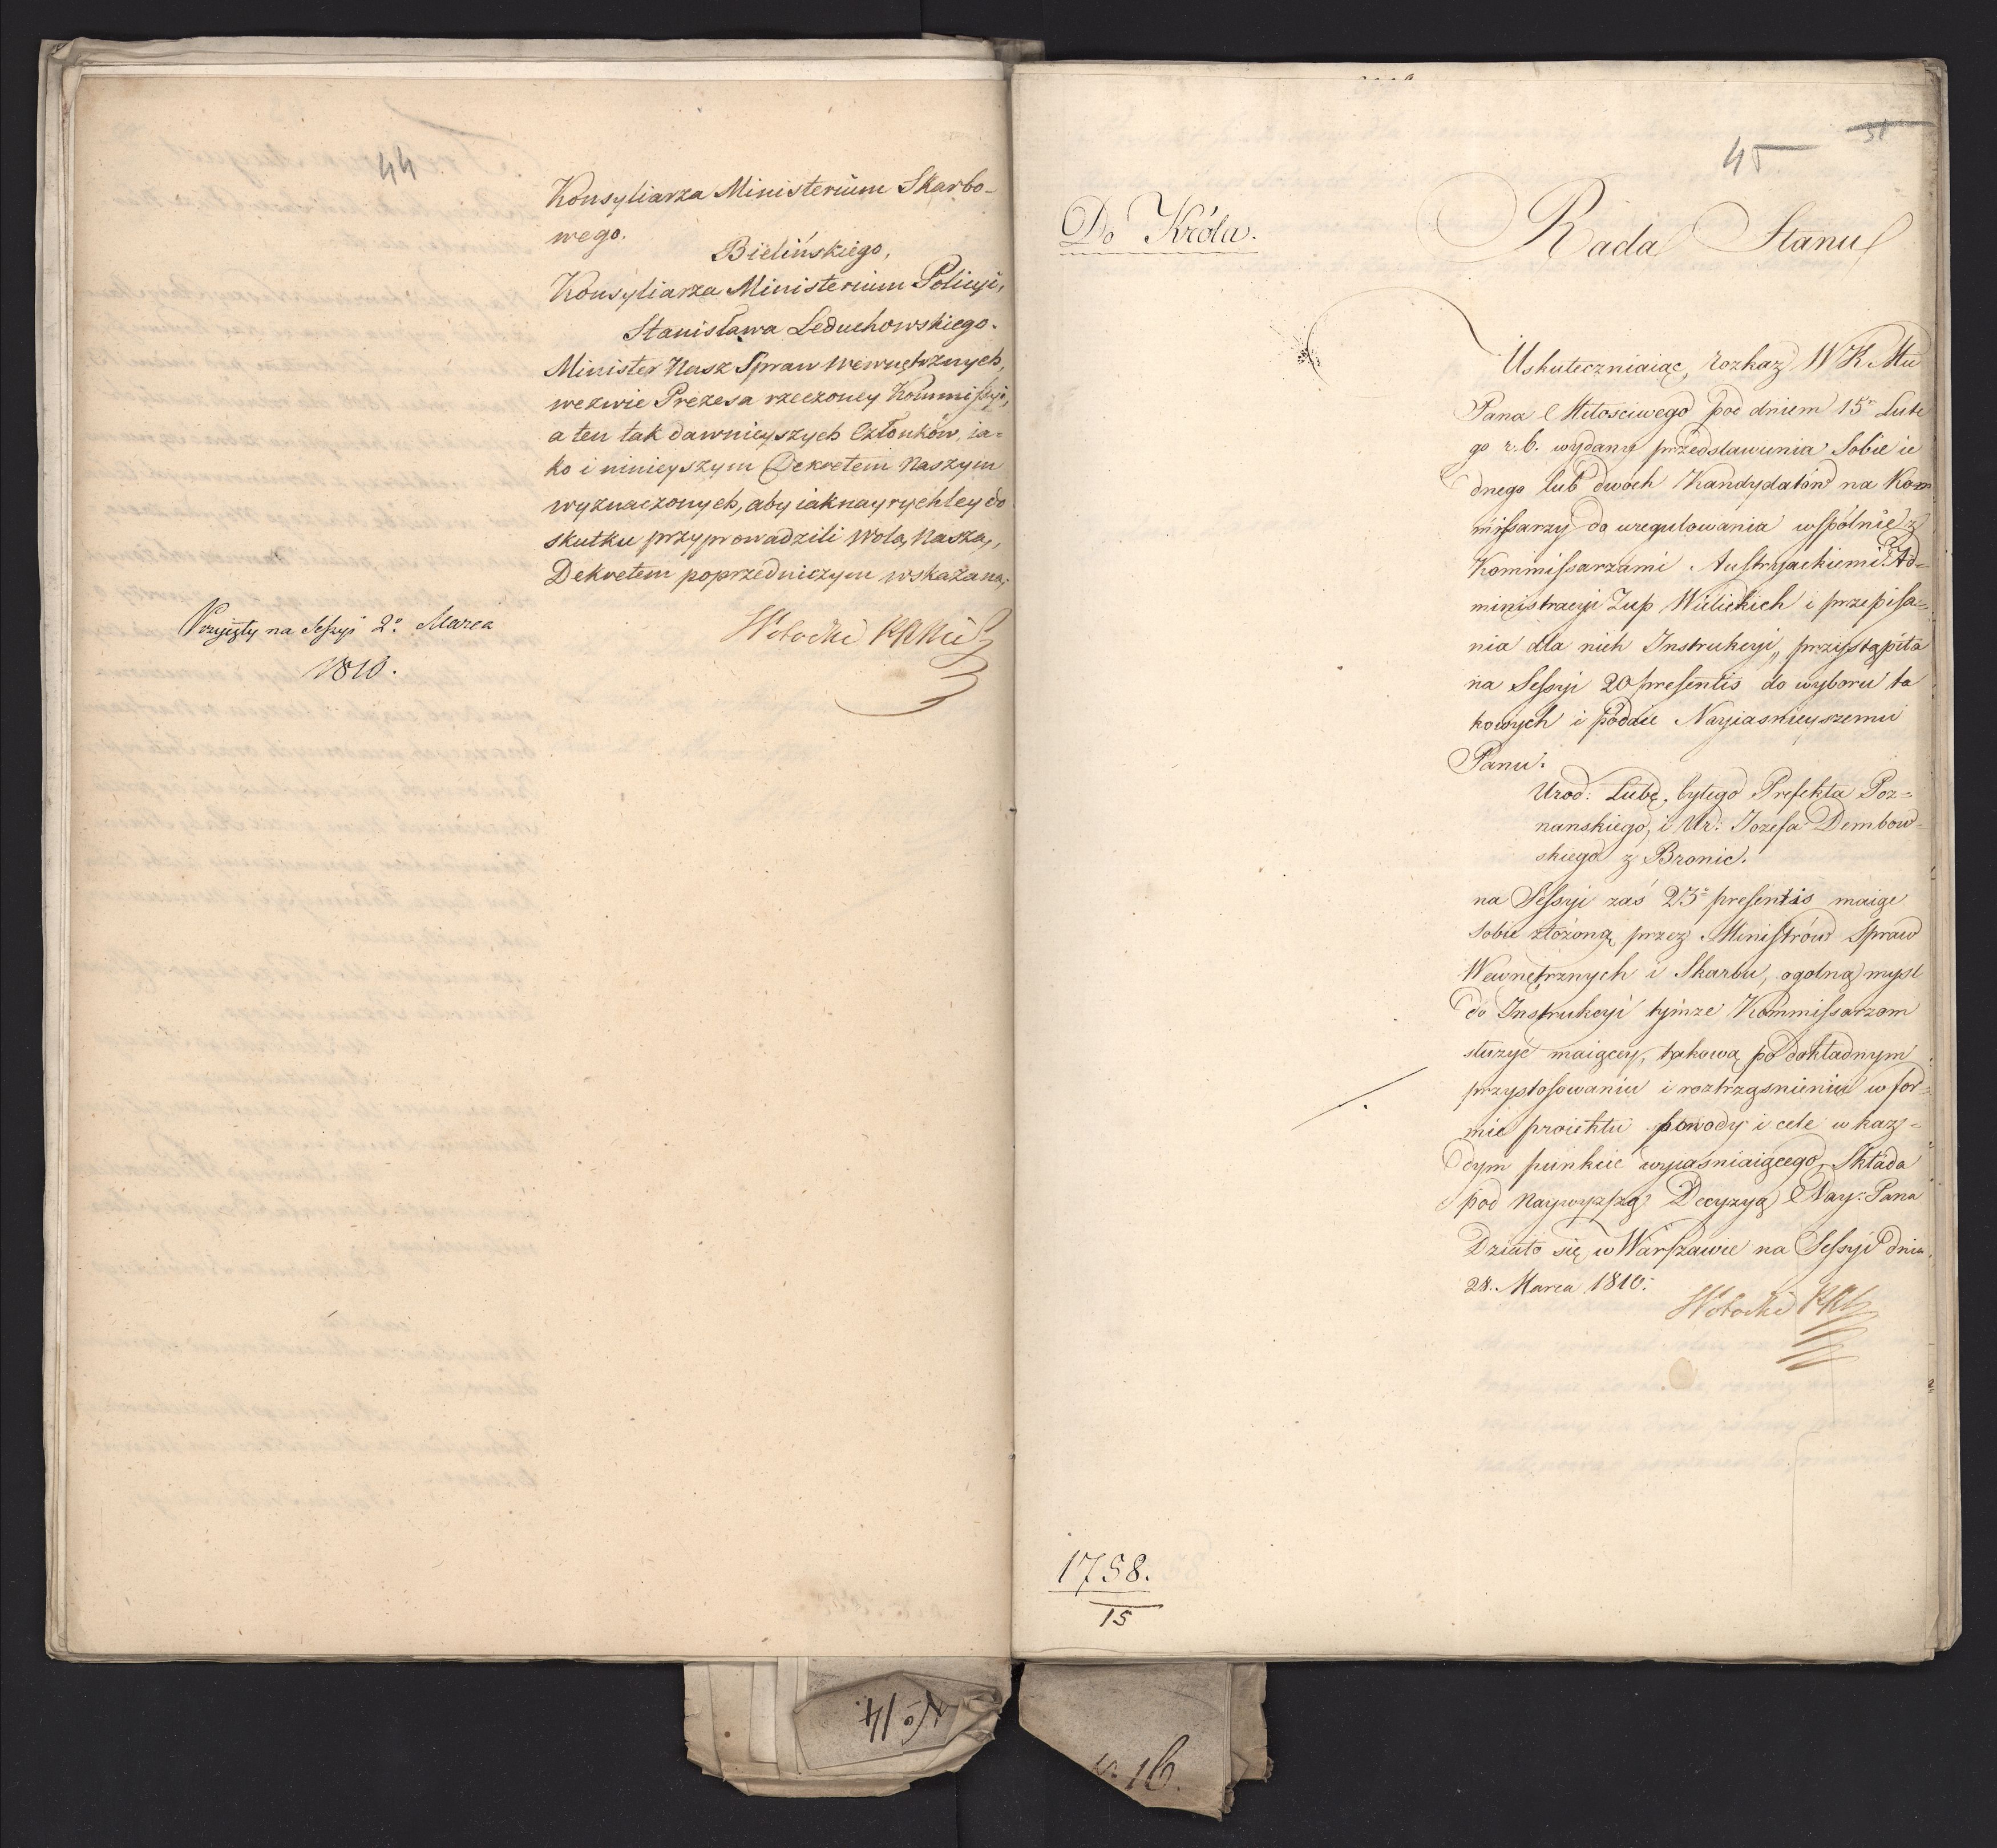 44
Konsyliarza Ministerium Skarbo-
wego.
Bielińskiego,
Konsyliarza Ministerium Policyi,
Stanisława Leduchowskiego.
Minister Nasz Spraw Wewnętrznych,
wezwie Prezesa rzeczoney Kommissyi,
a ten tak dawnieyszych Członków, ia-
ko i ninieyszym Dekretem Naszym
wyznaczonych, aby iaknayrychley do
skutku przyprowadzili Wolą Naszą,
Dekretem poprzedniczym wskazaną.
Przyięty na Sessyi 2o. Marca
1810.
45
31
Do Króla.
Rada Stanu
Uskuteczniaiąc, rozkaz W K Mu
Pana Miłościwego pod dniem 15o Lute
go r. b. wydany przedstawienia Sobie ie
dnego lub dwóch Kandydatów na Kom
missarzy do uregulowania wspólnie z
Kommissarzami Austryackiemi Ad=
ministracyi Żup Wielickich i przepisa=
nia dla nich Instrukcyi, przystąpiła
na Sessyi 20 presentis do wyboru ta
kowych i podaie Nayiasnieyszemu
Panu.
Urod: Lubę, byłego Prefekta Poz=
nanskiego, i Ur: Jozefa Dembow=
skiego z Bronic.
na Sessyi zaś 23o presentis maiąc
sobie złożoną przez Ministrów Spraw
Wewnętrznych i Skarbu, ogolną mysl
do Instrukcyi tymże Kommissarzom
służyć maiącey, takową po dokładnym
przystosowaniu i roztrząsnieniu w for=
mie proiektu powody i cele w każ=
dym punkcie wyiasniaiącego, Składa
pod Naywyższą Decyzyą Nay: Pana
Działo się w Warszawie na Sessyi dnia
28. Marca 1810.
1758.
15
No 14.
16.